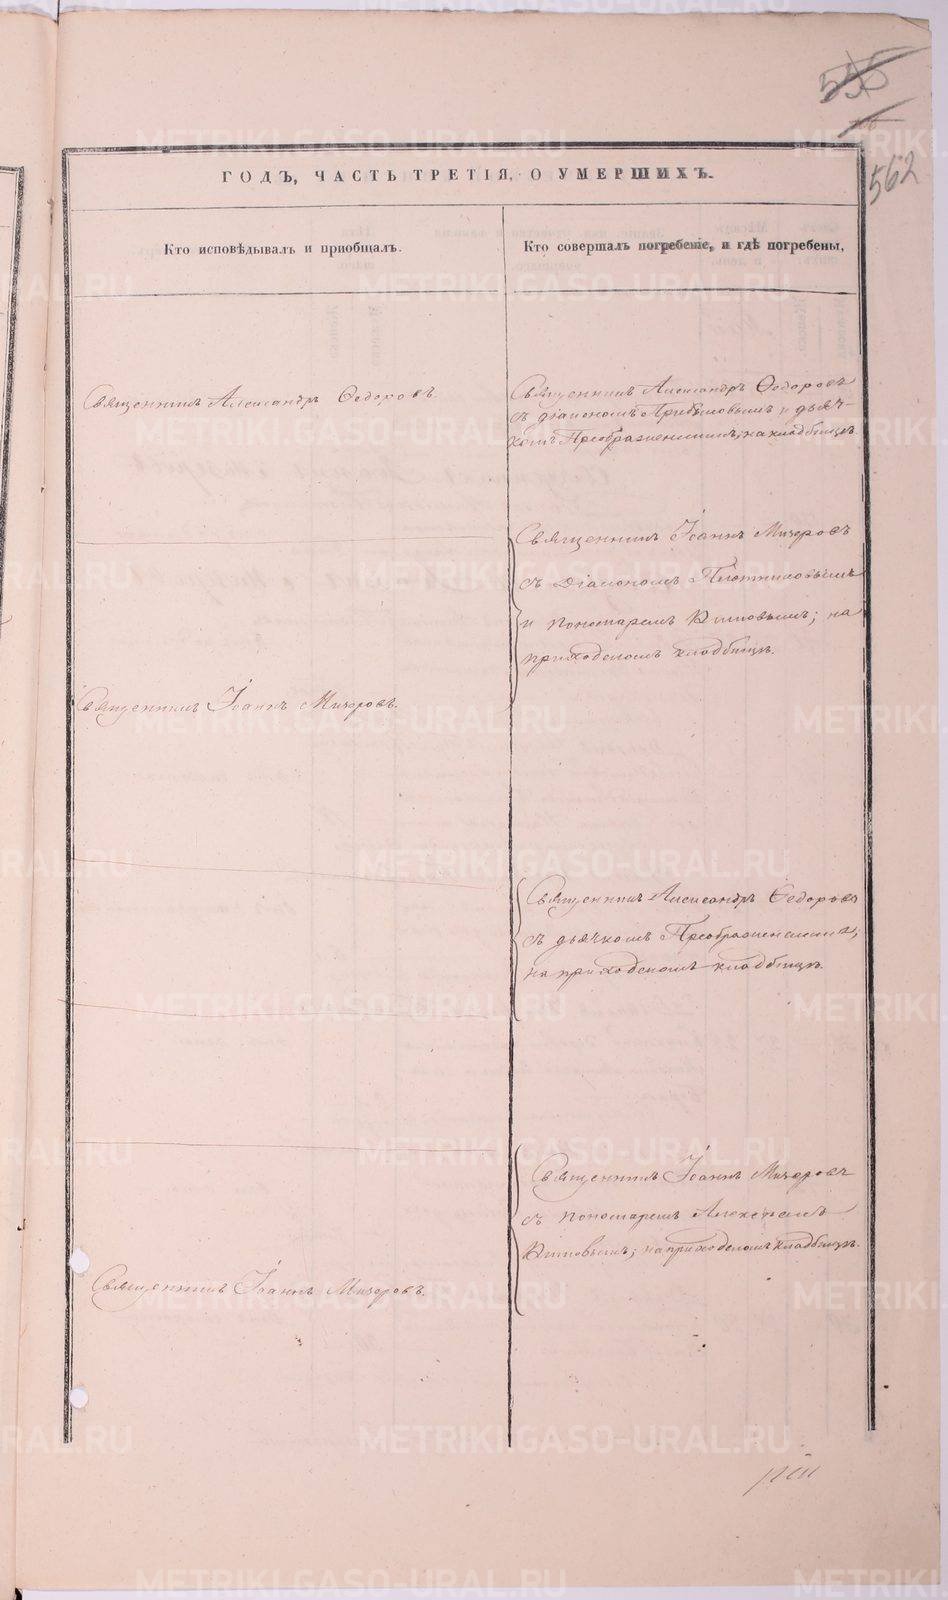 556
562
ГОДЪ, ЧАСТЬ ТРЕТІЯ, О УМЕРШИХЪ.
Кто исповѣдывалъ и приобщалъ.
Кто совершалъ погребеніе, и гдѣ погребены,
Священникъ Александръ Ѳедоровъ.
Священникъ Александръ Ѳедоровъ
съ діакономъ Прибыловымъ и дьяч-
комъ Преображенскимъ, на кладбищѣ.
Священникъ Іоаннъ Мичоровъ
съ Діакономъ Плотниковымъ
и пономаремъ Китовымъ; на
приходскомъ кладбищѣ.
Священникъ Іоаннъ Мичоровъ.
Священникъ Александръ Ѳедоровъ
съ дьячкомъ Преображенскимъ;
на приходскомъ кладбищѣ.
Священникъ Іоаннъ Мичоровъ
съ пономаремъ Алексѣемъ
Китовымъ; на приходскомъ кладбищѣ.
Священникъ Іоаннъ Мичоровъ.
METRIKI.GASO-URAL.RU